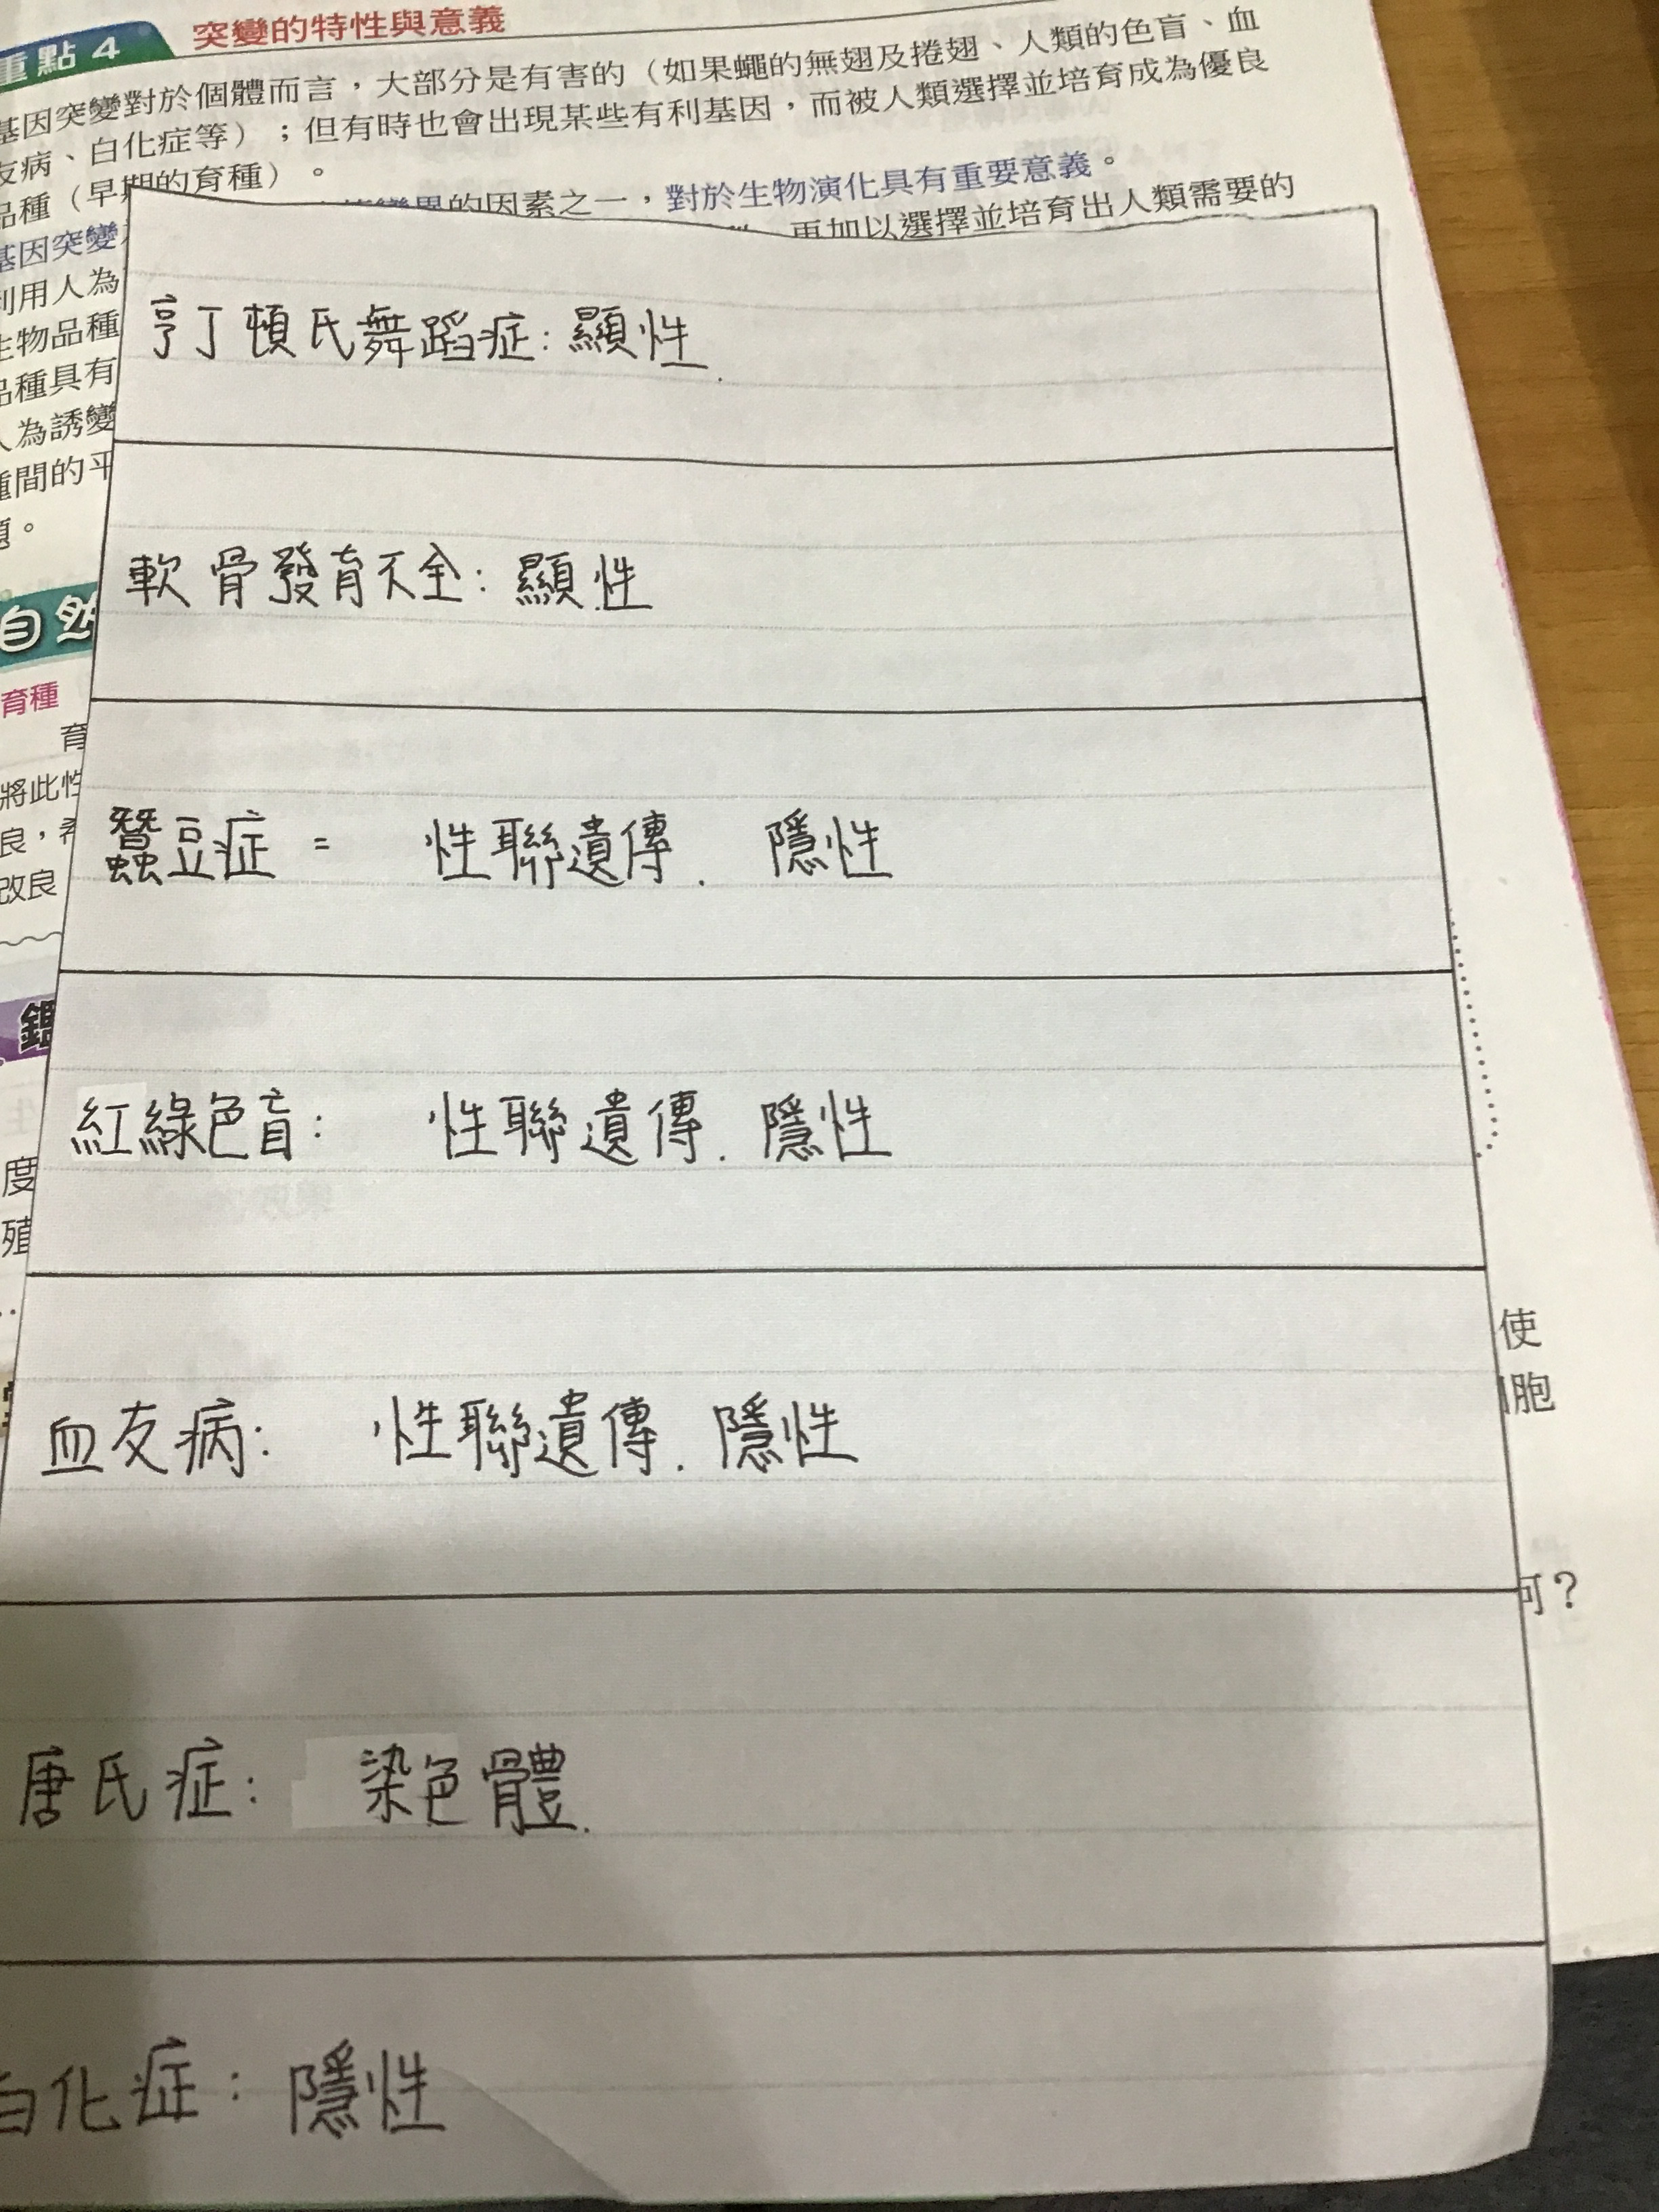 重點 4 突變的特性與意義
基因突變對於個體而言，大部分是有害的（如果蠅的無翅及捲翅、人類的色盲、血
友病、白化症等）；但有時也會出現某些有利基因，而被人類選擇並培育成為優良
品種（早期的育種）。
基因突變 變異的因素之一，對於生物演化具有重要意義。
利用人為 再加以選擇並培育出人類需要的
生物品種
品種具有
人為誘變
種間的平
題。
自然
育種
育
將此性
良，希
改良
度
殖
使
胞
何？
亨丁頓氏舞蹈症：顯性
軟骨發育不全：顯性
蠶豆症 = 性聯遺傳．隱性
紅綠色盲： 性聯遺傳．隱性
血友病： 性聯遺傳．隱性
唐氏症： 染色體.
白化症：隱性